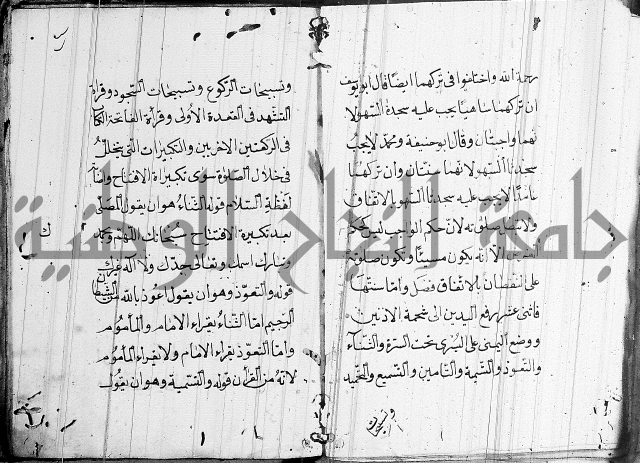 رحمة الله واختلفوا في تركهما ايضا قال ابو يوسف
ان تركهما ساهيا يجب عليه سجدة السهو لا
نهما واجبتان وقال ابو حنيفة ومحمد لا يجب
سجدتا السهو لانهما سنتان وان تركهما
عامدا لا يجب عليه سجدتا السهو بالاتفاق
ولا تفسد صلوته لان حكم الواجب ليس كحكم
الا انه يكون مسيئا وتكون صلوته
على النقصان بالاتفاق فصل واما سننها
فاثنى عشر رفع اليدين الى شحمة الاذنين
ووضع اليمنى على اليسرى تحت السرة والثناء
والتعوذ والتسمية والتامين والتسميع والتحميد
وتسبيحات
وتسبيحات الركوع وتسبيحات السجود وقراة
التشهد في القعدة الاولى وقرأة الفاتحة
في الركعتين الاخريين والتكبيرات التي يتخلل
في خلال الصلوة سوى تكبيرة الافتتاح
لفظة السلام قوله الثناء هو ان يقول المصلي
بعد تكبيرة الافتتاح سبحانك اللهم وبحمدك
وتبارك اسمك وتعالى جدك ولا اله غيرك
قوله والتعوذ وهو ان يقول اعوذ بالله من الشيطان
الرجيم اما الثناء يقراء الامام والمأموم
واما التعوذ يقراء الامام ولا يقراء المأموم
لانه من القرأن قوله والتسمية وهو ان يقول
جامعة النجاح الوطنية